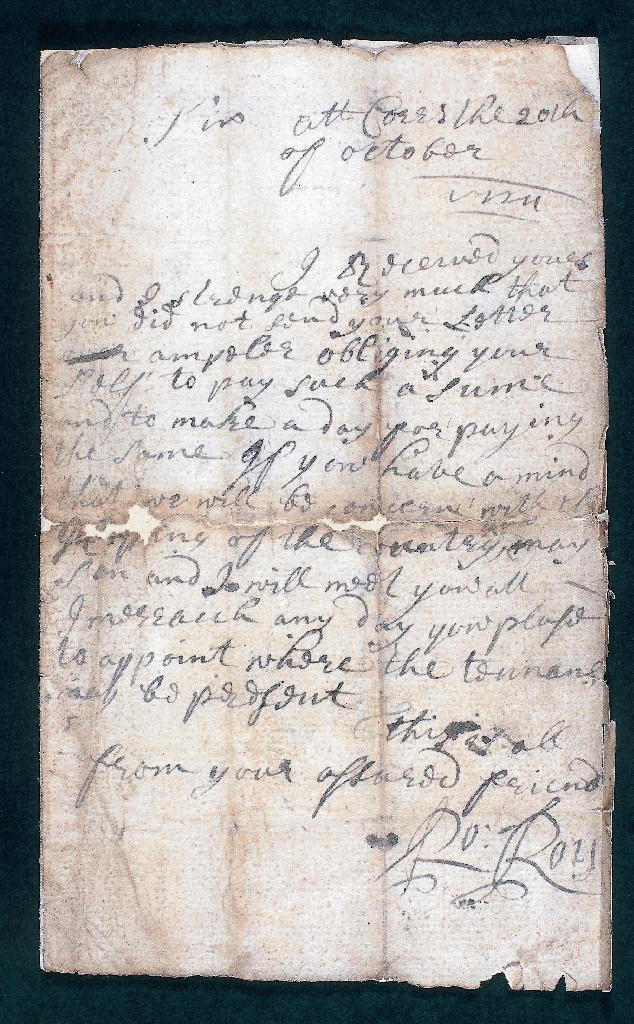 Sir att Corerthe 20th
of october
I Received youre
and I strenge very much that
you did not send your Letter
ampeler obliging your
self to pay such a sume
and to make a day for paying
the same If you have a mind
that we will be concern with
of the countrey, may
sen and I will meet you att
any day you plase
to appoint where the tennane
may be present
this is all
from your assured friend
Ro: Roy